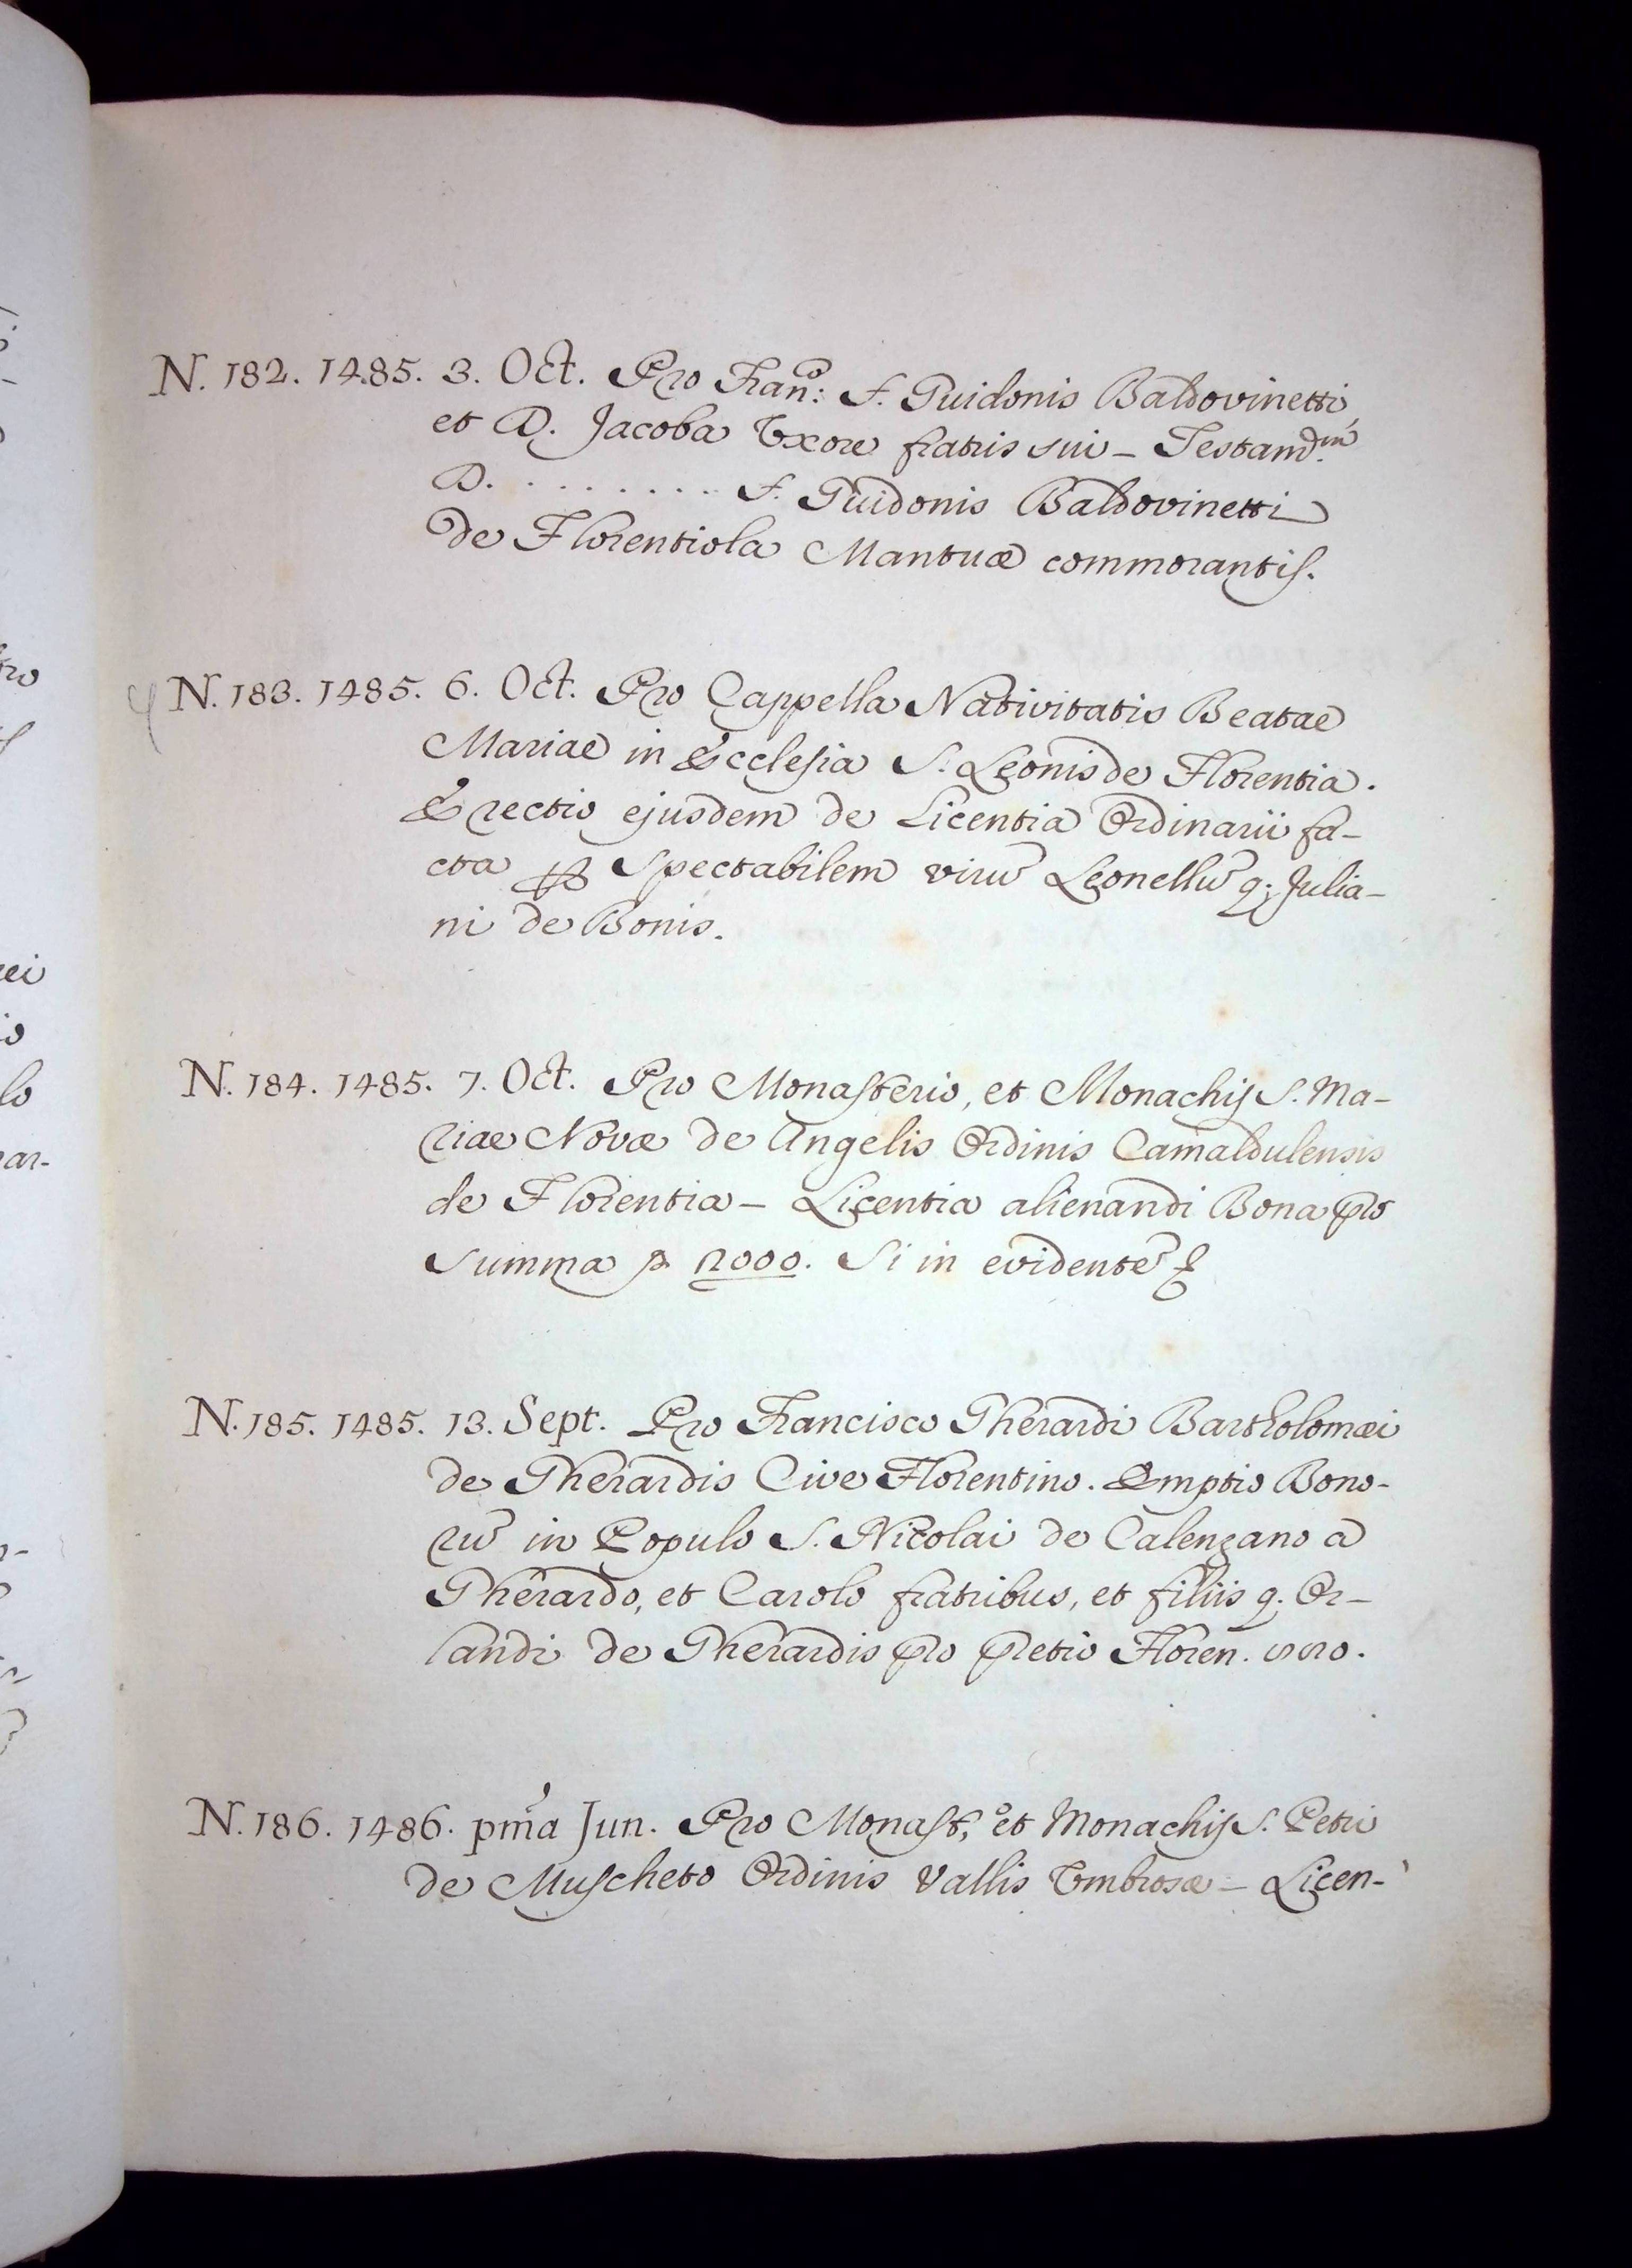 N. 182. 1485. 3. Oct. Pro Fran:co f. Guidonis Baldovinetti,
et D. Jacoba Uxore fratris sui – Testam.m
D. . . . . . . . . . f. Guidonis Baldovinetti
de Florentiola Mantuæ commorantis.
N. 183. 1485. 6. Oct. Pro Cappella Nativitatis Beatae
Mariae in Ecclesia S. Leonis de Florentia.
Erectio ejusdem de Licentia Ordinarii fa-
cta ꝑ Spectabilem virũ Leonellũ q. Julia-
ni de Bonis.
N. 184. 1485. 7. Oct. Pro Monasterio, et Monachis S. Ma-
riae Novæ de Angelis Ordinis Camaldulensis
de Florentia – Licentia alienandi Bona pro
Summa 2000. Si in evidentẽ
N. 185. 1485. 13. Sept. Pro Francisco Gherardi Bartholomæi
de Gherardis Cive Florentino. Emptio Bono-
rũ in Populo S. Nicolai de Calenzano a
Gherardo, et Carolo fratribus, et filiis q. Or-
landi de Gherardis pro pretio Floren.
N. 186. 1486. pm̃a Jun. Pro Monast.o et Monachis S. Petri
de Muscheto Ordinis Vallis Umbrosæ – Licen-